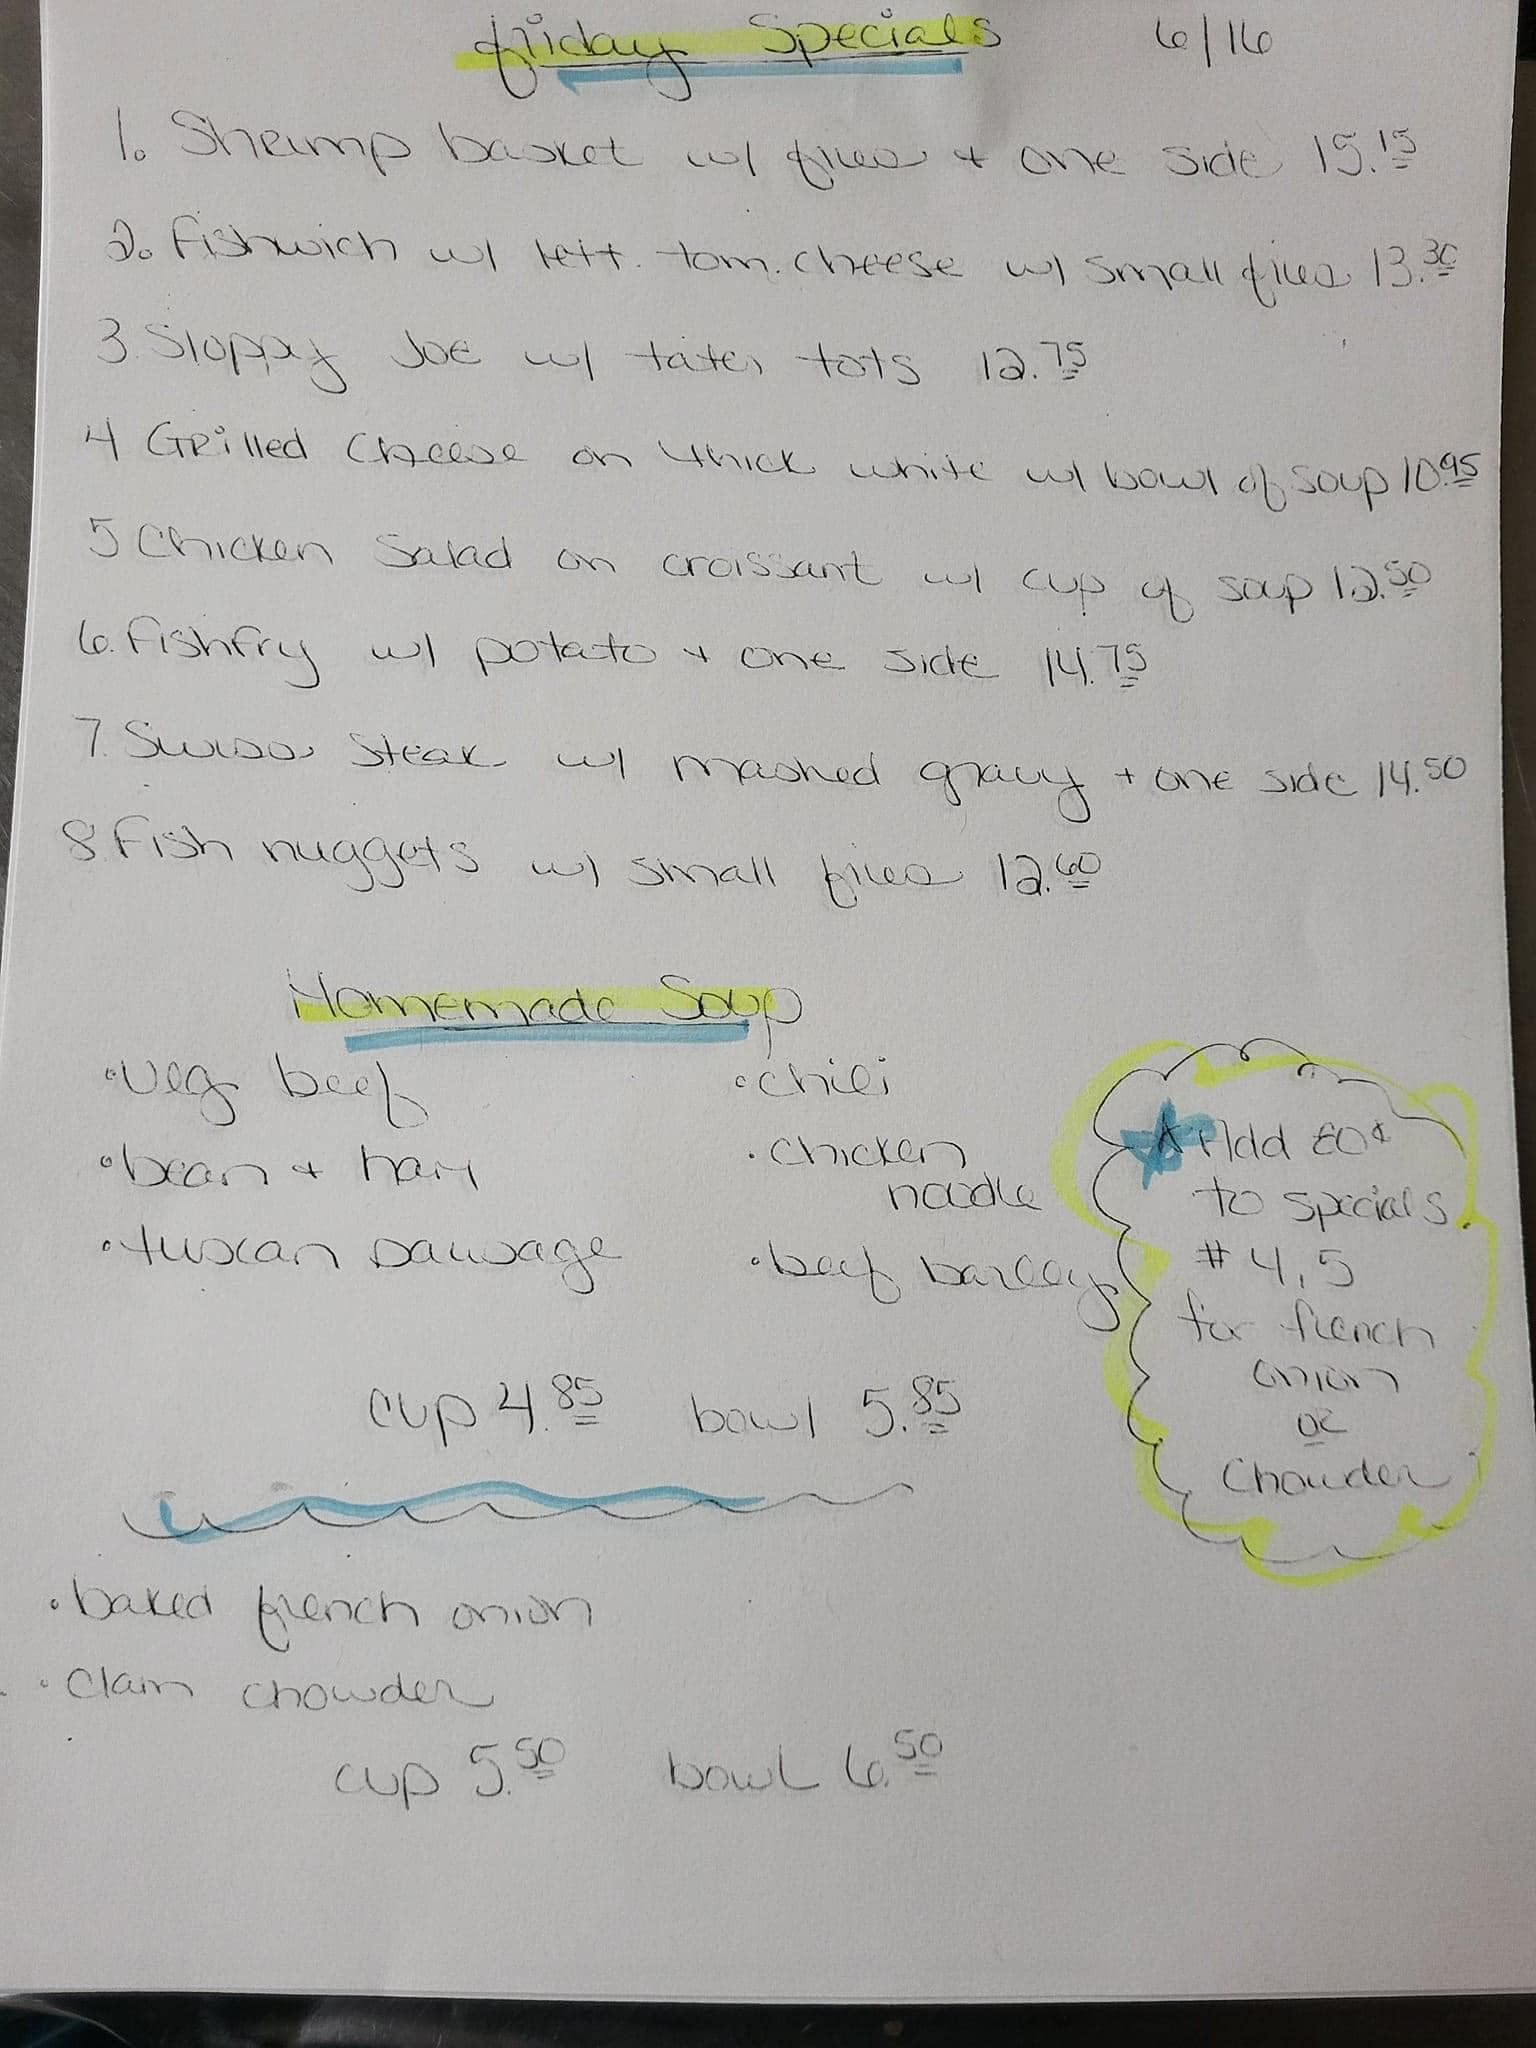 friday Specials 6/16
1. Shrimp basket w/ fries + one side 15.15
2. Fishwich w/ lett. tom. cheese w/ small fries 13.30
3. Sloppy Joe w/ tater tots 12.75
4 Grilled Cheese on thick white w/ bowl of soup 10.95
5 Chicken Salad on croissant w/ cup of soup 12.50
6. Fishfry w/ potato + one side 14.75
7. Swiss Steak w/ mashed gravy + one side 14.50
8. Fish nuggets w/ small fries 12.60
Homemade Soup
• veg beef
• bean + ham
• tuscan sausage
• chili
• chicken
noodle
• beef barley
cup 4.85 bowl 5.85
Add 80¢
to specials
# 4, 5
for french
onion
or
Chowder
• baked french onion
• Clam chowder
cup 5.50 bowl 6.50